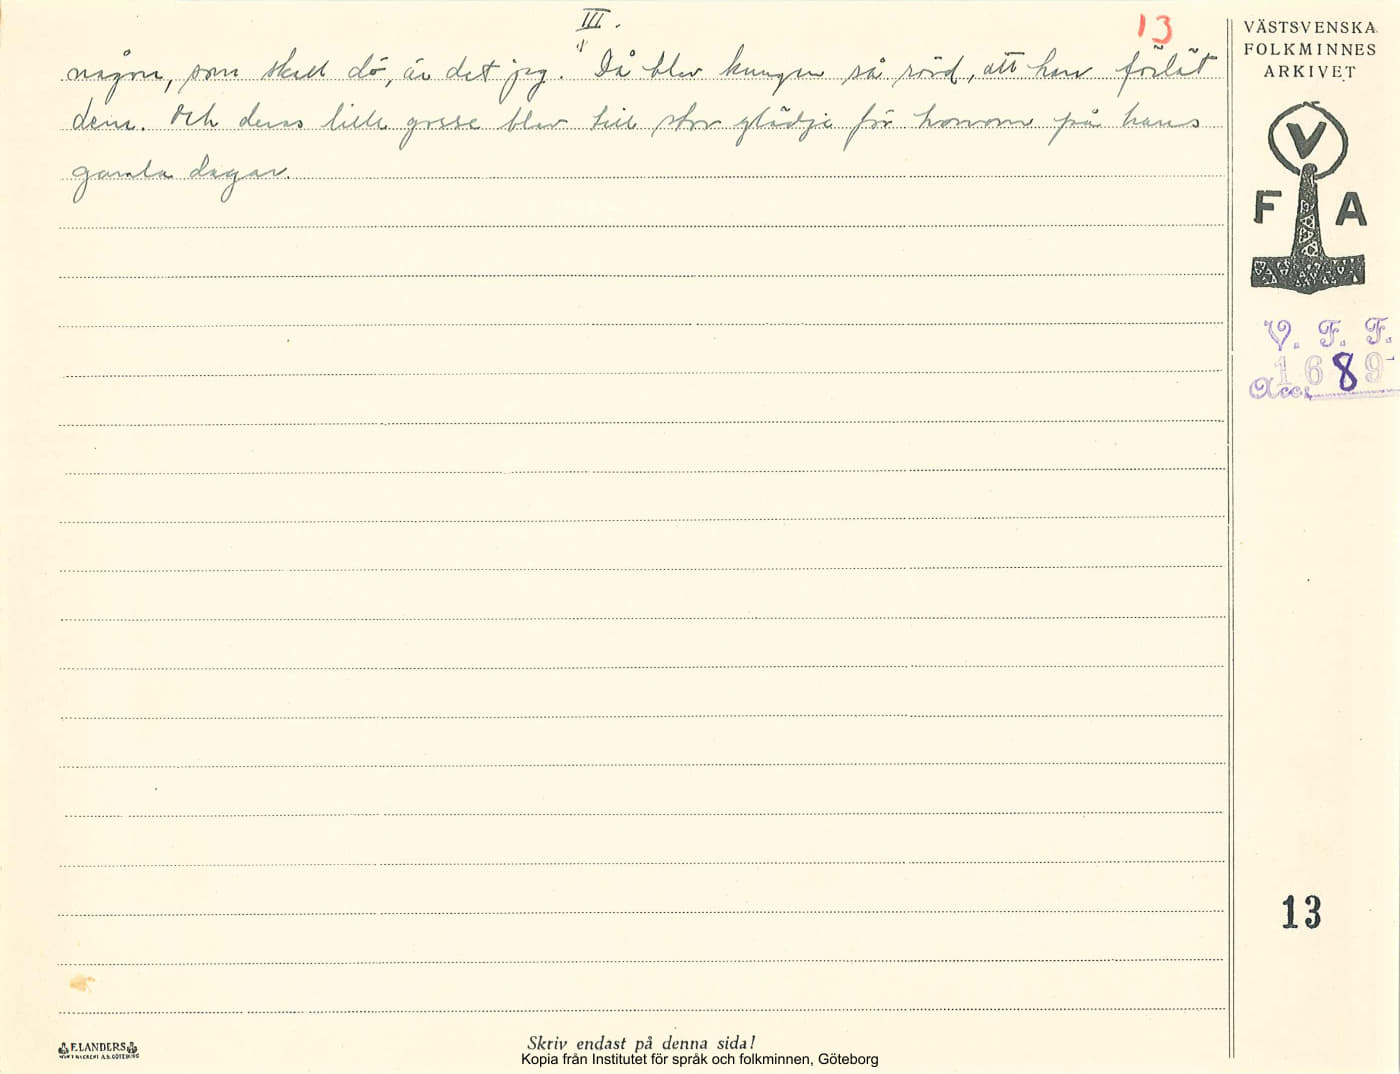 III.
13
någon, som skall dö, är det jag." Då blev kungen så rörd, att han förlät
dem. Och deras lille gosse blev till stor glädje för honom på hans
gamla dagar.
VÄSTSVENSKA
FOLKMINNES
ARKIVET
V
F A
V. F. F.
Acc. 1689
13
F. LANDERS
Skriv endast på denna sida!
Kopia från Institutet för språk och folkminnen, Göteborg